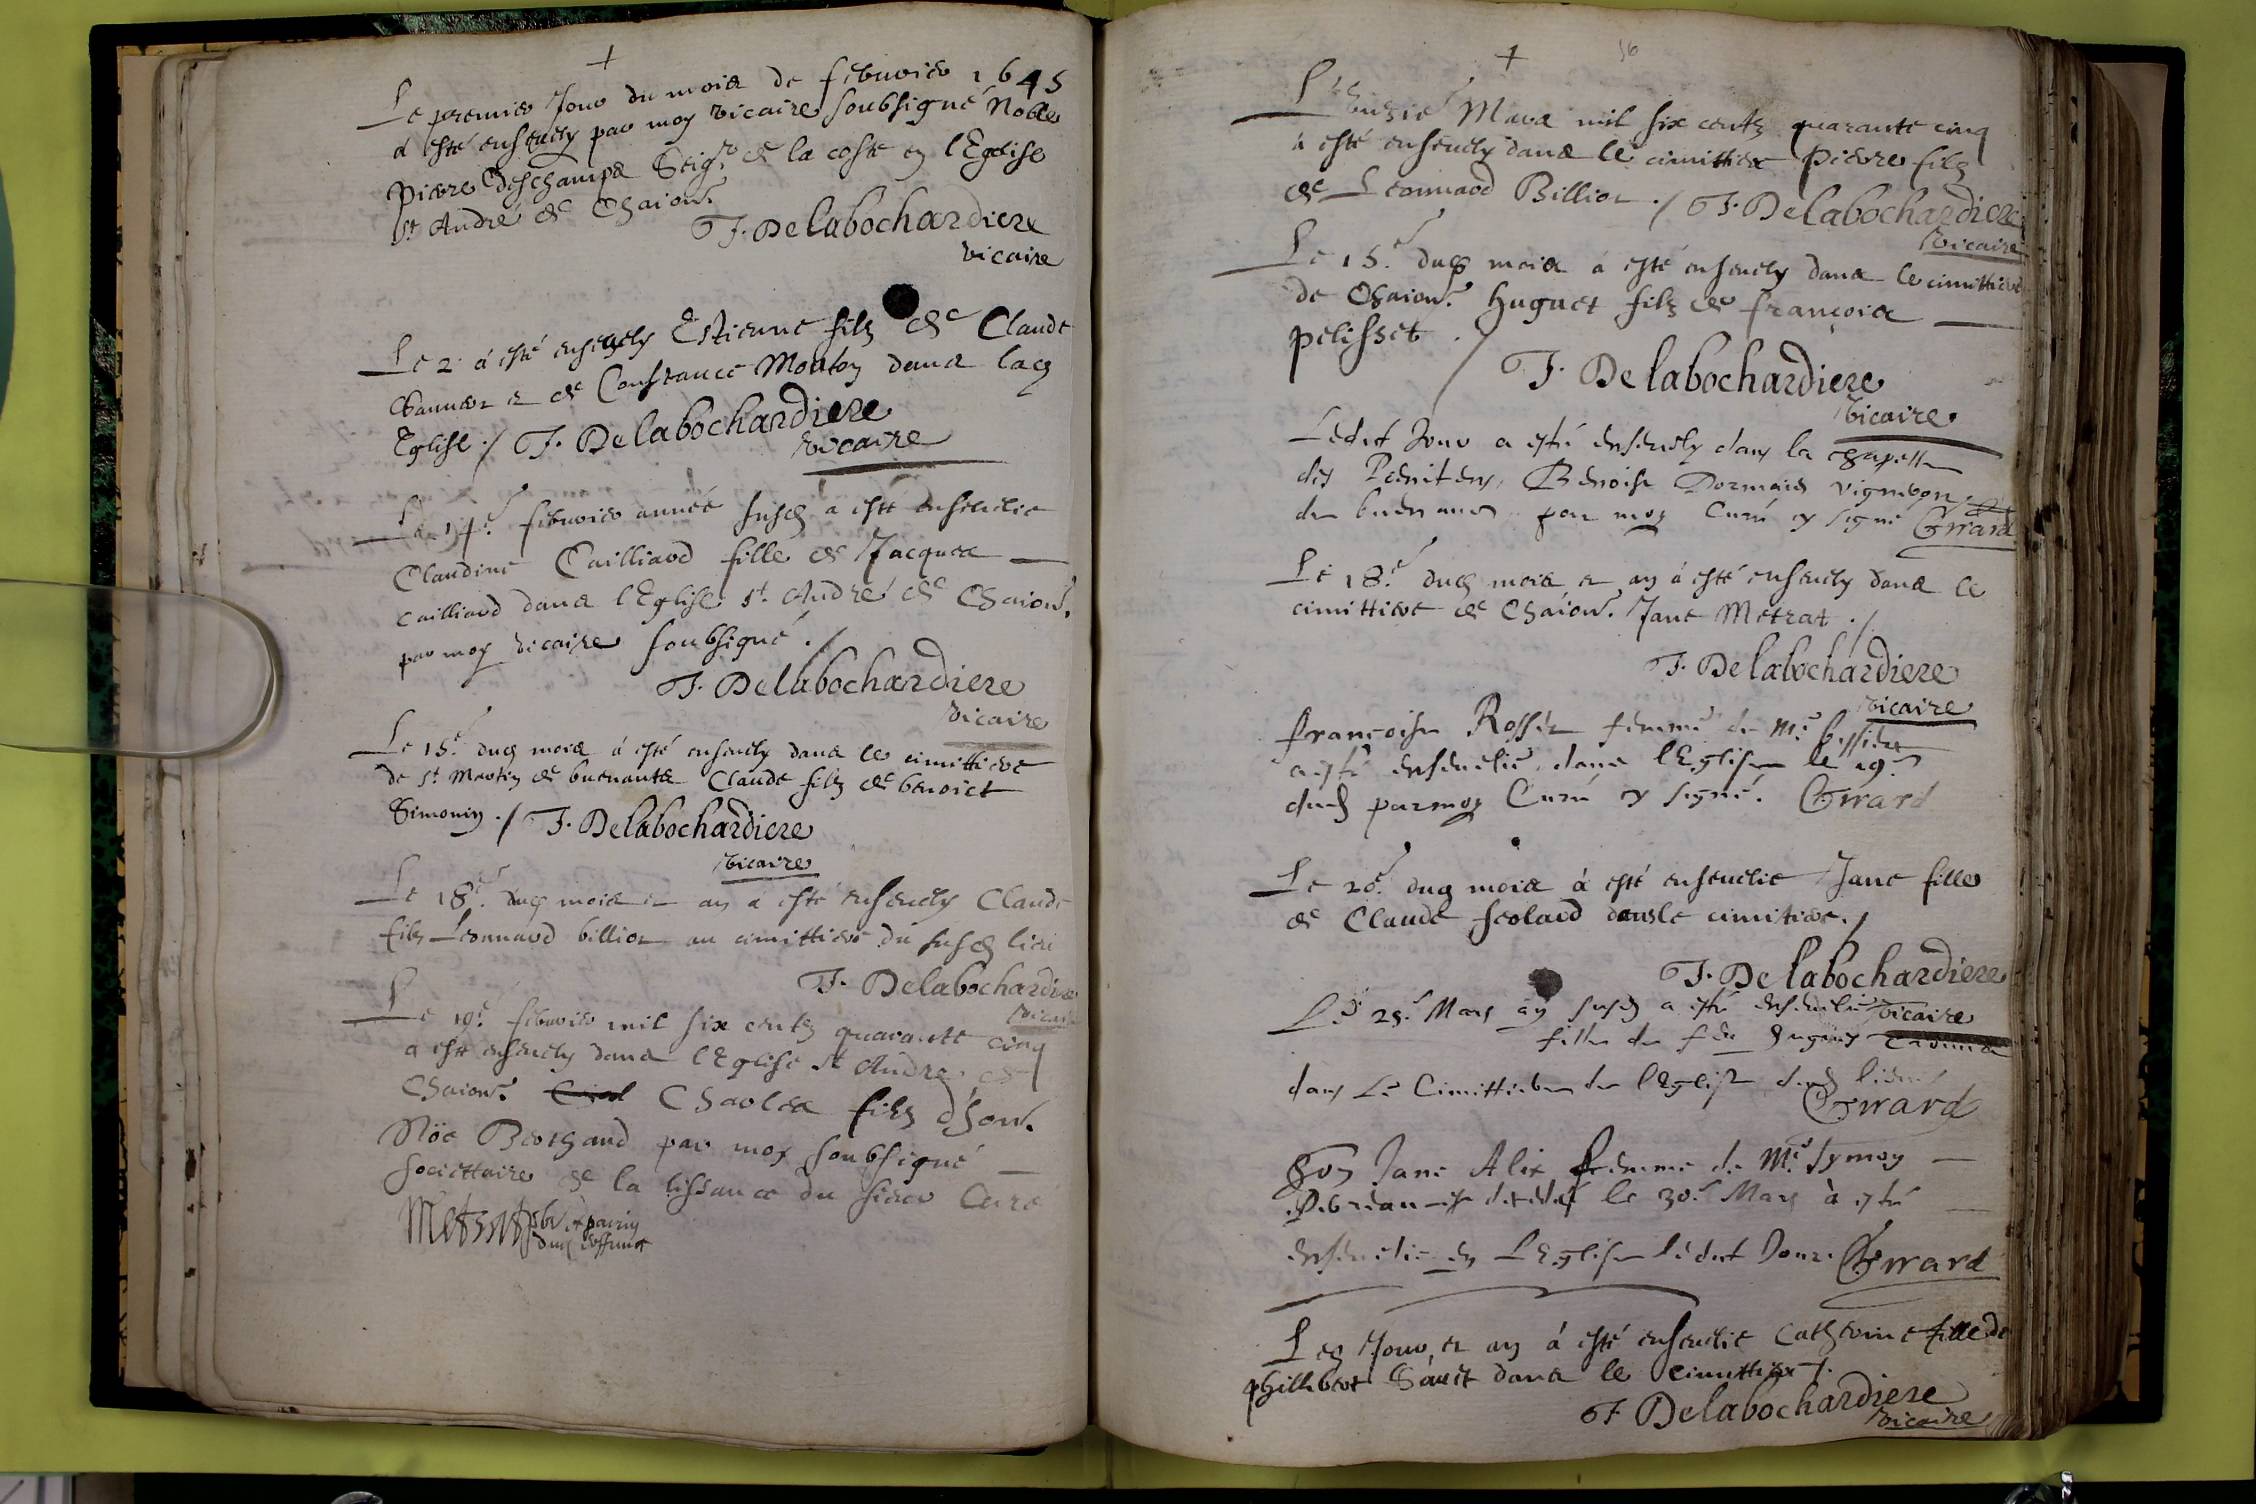 Le premier Jour du mois de febvrier 1645
à esté ensevely par moy vicaire soubsigné Noble
Pierre deschamps Seigr de la coste en l'Eglise
St André de Charou.
F. Delabochardiere
vicaire
Le 2 à esté ensevely Estienne filz de Claude
et de Constance Mouton dans lad
Eglise ./ F. Delabochardiere
vicaire
Le 14e febvrier année susd a esté ensevelie
Claudine Cailliard fille de Jacques
cailliard dans l'Eglise St André de Charou.
par moy vicaire soubsigné ./
F. Delabochardiere
vicaire
Le 15e dud mois à esté ensevely dans le cimittiere
de St Martin de buenants Claude filz de benoict
Simonin ./ F. Delabochardiere
vicaire
Le 18e dud mois et an a esté ensevely Claude
filz Leonnard billiot au cimittiere du susd lieu
F. Delabochardiere
vicaire
Le 19e febvrier mil six centz quarante cinq
a esté ensevely dans l'Eglise St André de
Charou. Charles filz d'hon.
Nöe Berthaud par moy soubsigné
societtaire de la du sieur Curé
pbr et parrin
dud deffunct
56
L' Mars mil six centz quarante cinq
à esté ensevely dans le cimittiere Pierre filz
de Leonnard Billiot ./ F. Delabochardiere
vicaire
Le 15e dud mois à esté ensevely dans le cimittiere
de Charou. huguet filz de françois
pelisset ./
F. Delabochardiere
vicaire
Ledit Jour a esté ensevely dans la chapelle
des Penitens, Benoist vigneron
de buenans par moy Curé cy signé Girrard
Le 18e dud mois et an à esté ensevely dans le
cimittiere de Charou. Jane Metrat ./
F. Delabochardiere
vicaire
françoise Rossier femme de Me
a esté ensevelie dans l'Eglise le 19e
dud par moy Curé cy signé. Girrard
Le 20e dud mois à esté ensevelie Jane fille
de Claude dans le cimitiere ./
F. Delabochardiere
vicaire
Le 25e Mars an susd a esté ensevelie
fille de feu
dans le Cimittiere de l'Eglise dud lieu
Girrard
Jane Alix femme de Me Symon
le 30e Mars à esté
ensevelie en L'Eglise ledit Jour. Girrard
Led Jour et an à esté ensevelie Catherine fille de
phillibert dans le cimittiere ./
F. Delabochardiere
vicaire